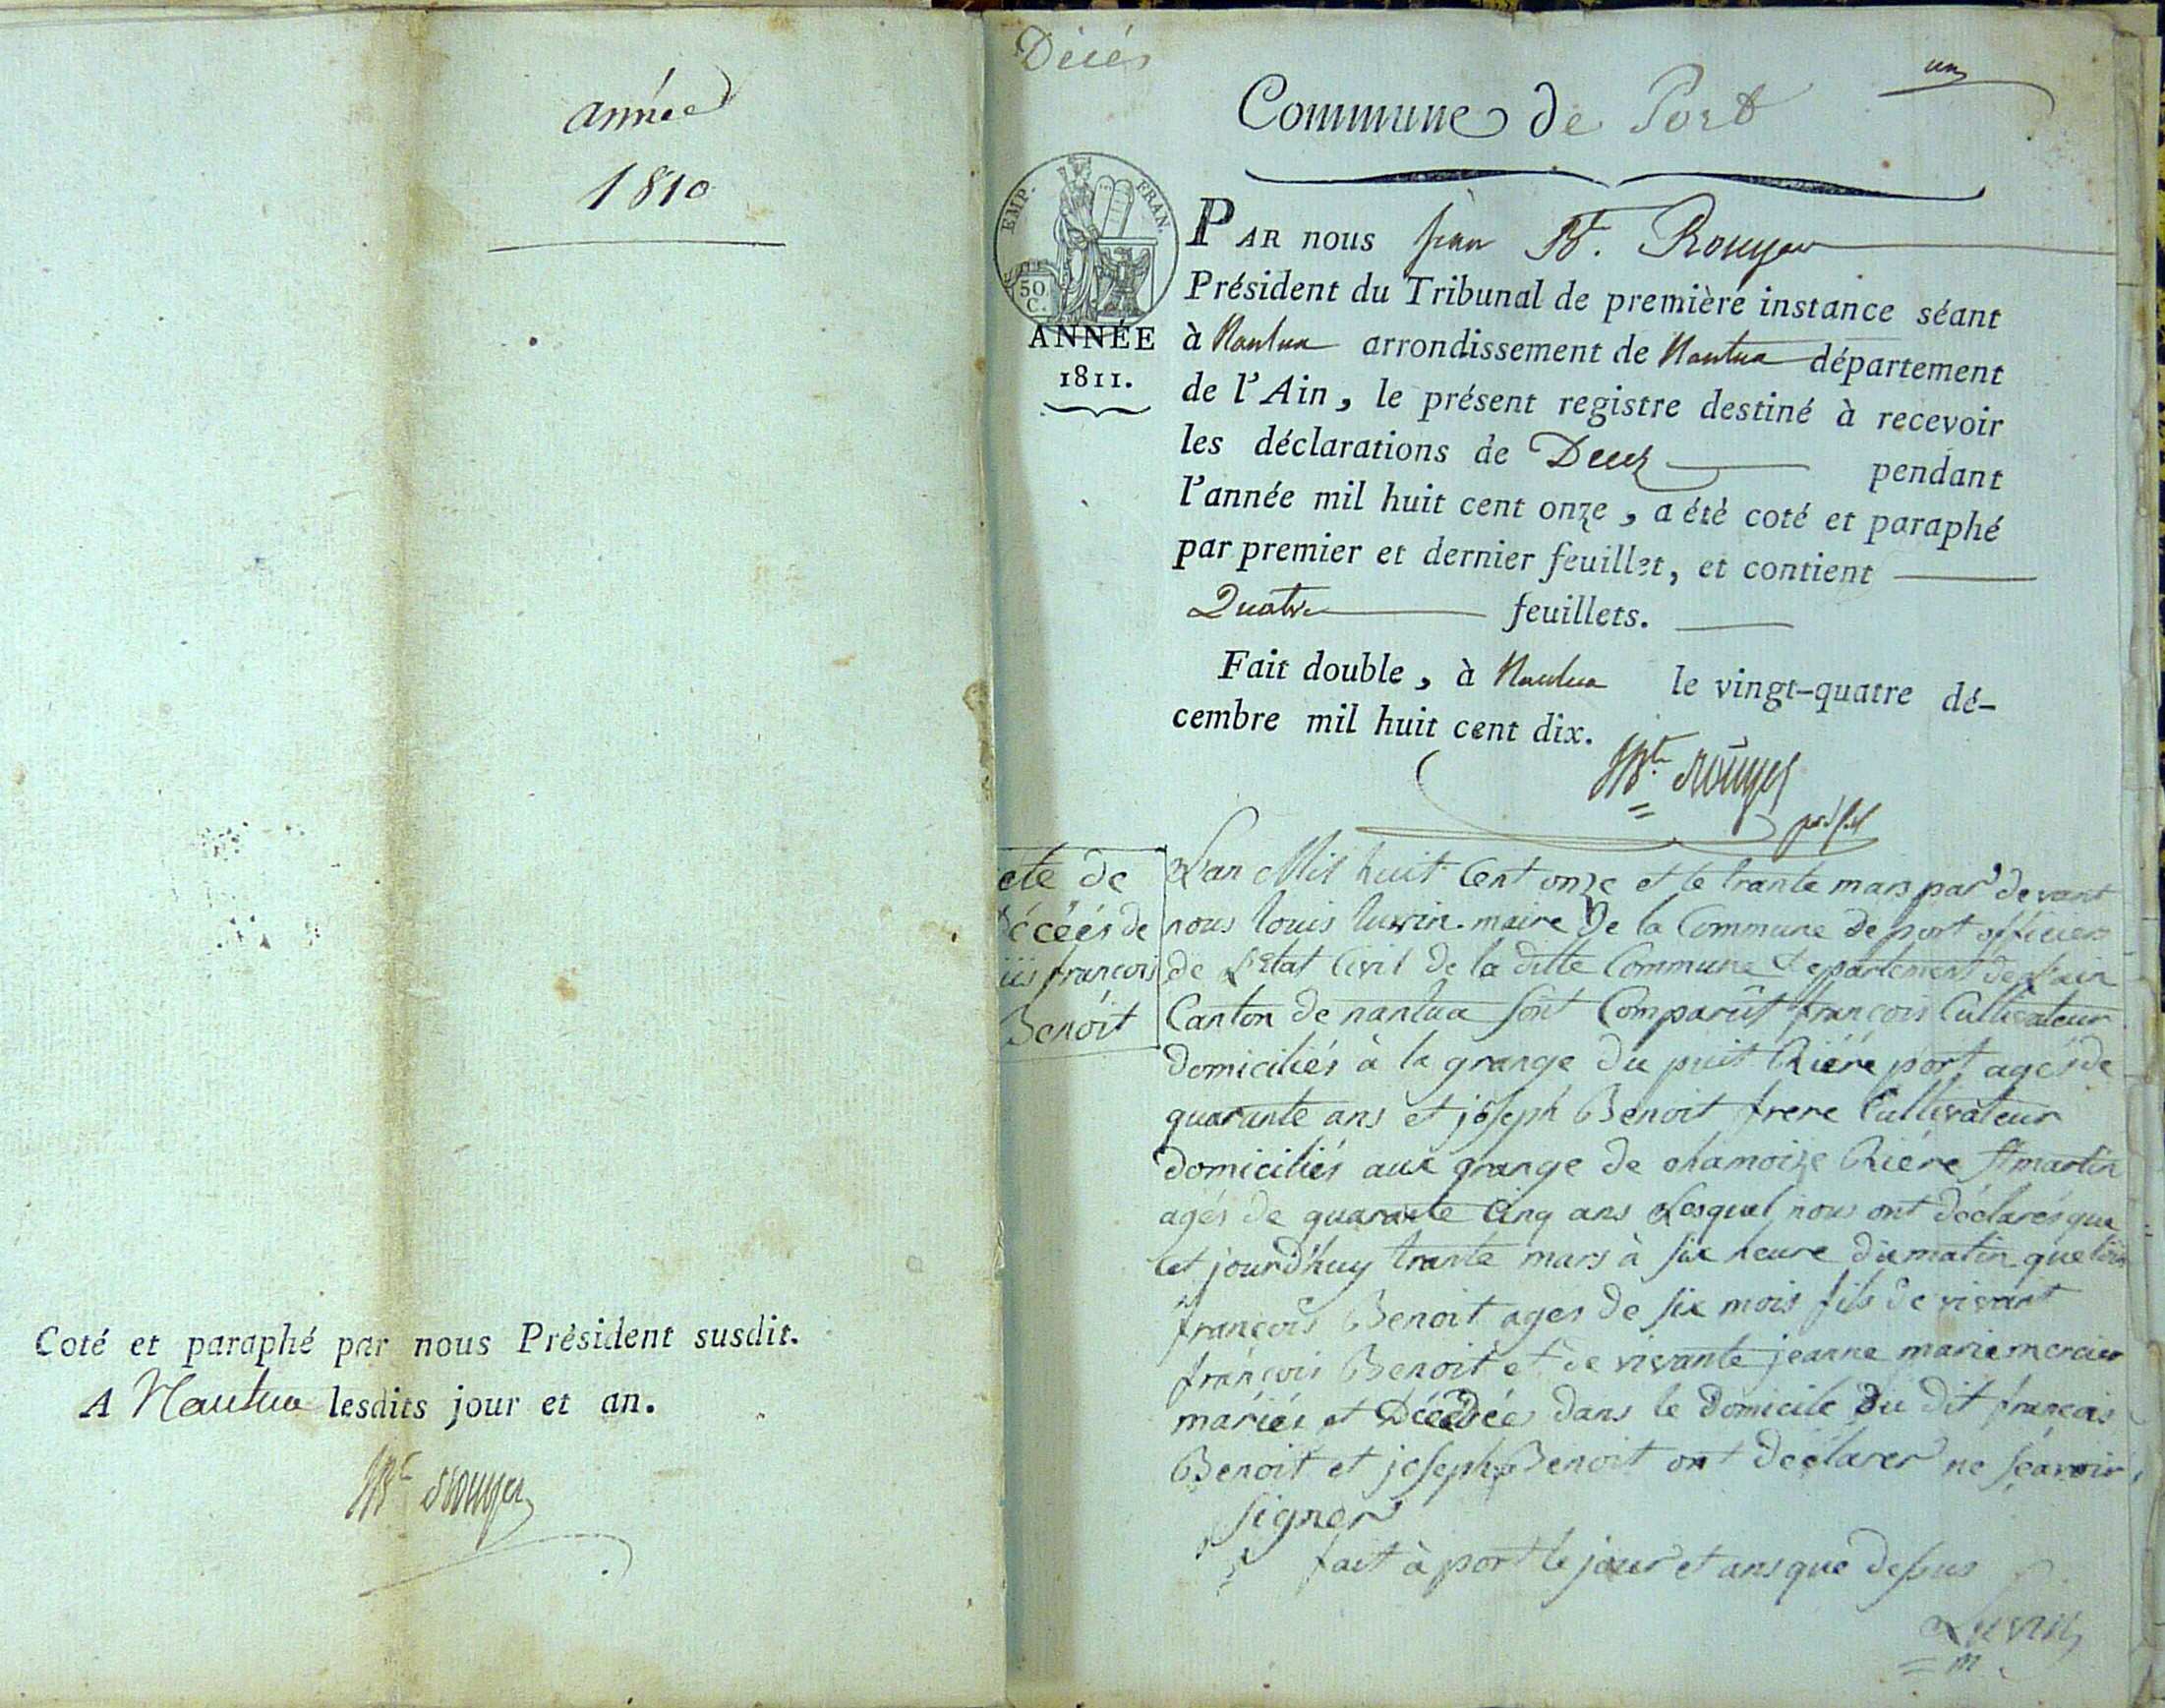 année
1810
Coté et paraphé par nous Président susdit.
A Nantua lesdits jour et an.
JBte Rouyer
Décés
un
Commune de Port
EMP. FRAN.
50
C.
ANNÉE
1811.
PAR nous jean Bt. Rouyer
Président du Tribunal de première instance séant
à Nantua arrondissement de Nantua département
de l'Ain, le présent registre destiné à recevoir
les déclarations de Decès pendant
l'année mil huit cent onze, a été coté et paraphé
par premier et dernier feuillet, et contient
Quatre feuillets.
Fait double, à Nantua le vingt-quatre dé-
cembre mil huit cent dix.
JBte Rouyer
cte de
écéés de
françois
Benoit
L'an Mil huit Cent onze et le trante mars par devant
nous louis luvrin maire De la Commune de port officier
de L'etat Civil de la ditte Commune departement de l'ain
Canton de nantua sont Comparût françois Cultivateur
domiciliés à la grange du puit Riére port agés de
quarante ans et joseph Benoit frere Cultivateur
domiciliés aux grange de chamoize Riére St martin
agés de quarante Cinq ans Lesquel nous ont déclarés que
cet jourd'huy trante mars à six heure du matin que
françois Benoit ages de six mois fils de vivant
françois Benoit et de vivante jeanne marie mercier
mariés et Décédée dans le Domicile du dit françois
Benoit et joseph Benoit ont déclarer ne sçavoir
signer
fait à port le jour et ans que dessus
Luvrin
m